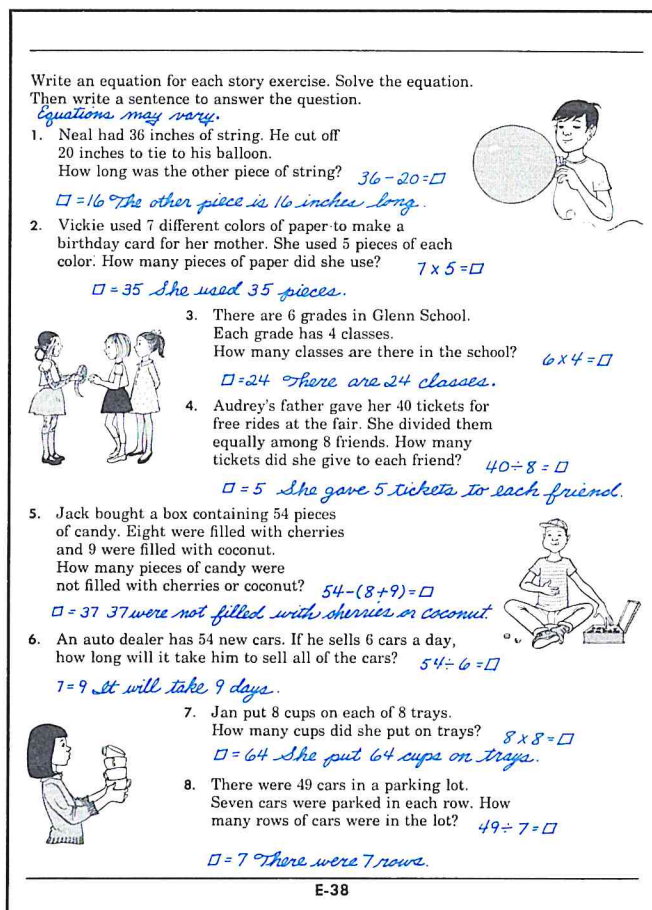 Write an equation for each story exercise. Solve the equation.
Then write a sentence to answer the question.
Equations may vary.
1. Neal had 36 inches of string. He cut off
20 inches to tie to his balloon.
How long was the other piece of string? 36-20=□
□=16 The other piece is 16 inches long.
2. Vickie used 7 different colors of paper to make a
birthday card for her mother. She used 5 pieces of each
color. How many pieces of paper did she use? 7 x 5=□
□=35 She used 35 pieces.
3. There are 6 grades in Glenn School.
Each grade has 4 classes.
How many classes are there in the school? 6x4=□
□=24 There are 24 classes.
4. Audrey's father gave her 40 tickets for
free rides at the fair. She divided them
equally among 8 friends. How many
tickets did she give to each friend? 40÷8=□
□=5 She gave 5 tickets to each friend.
5. Jack bought a box containing 54 pieces
of candy. Eight were filled with cherries
and 9 were filled with coconut.
How many pieces of candy were
not filled with cherries or coconut? 54-(8+9)=□
□=37 37 were not filled with cherries or coconut.
6. An auto dealer has 54 new cars. If he sells 6 cars a day,
how long will it take him to sell all of the cars? 54÷6=□
7=9 It will take 9 days.
7. Jan put 8 cups on each of 8 trays.
How many cups did she put on trays? 8x8=□
□=64 She put 64 cups on trays.
8. There were 49 cars in a parking lot.
Seven cars were parked in each row. How
many rows of cars were in the lot? 49÷7=□
□=7 There were 7 rows.
E-38